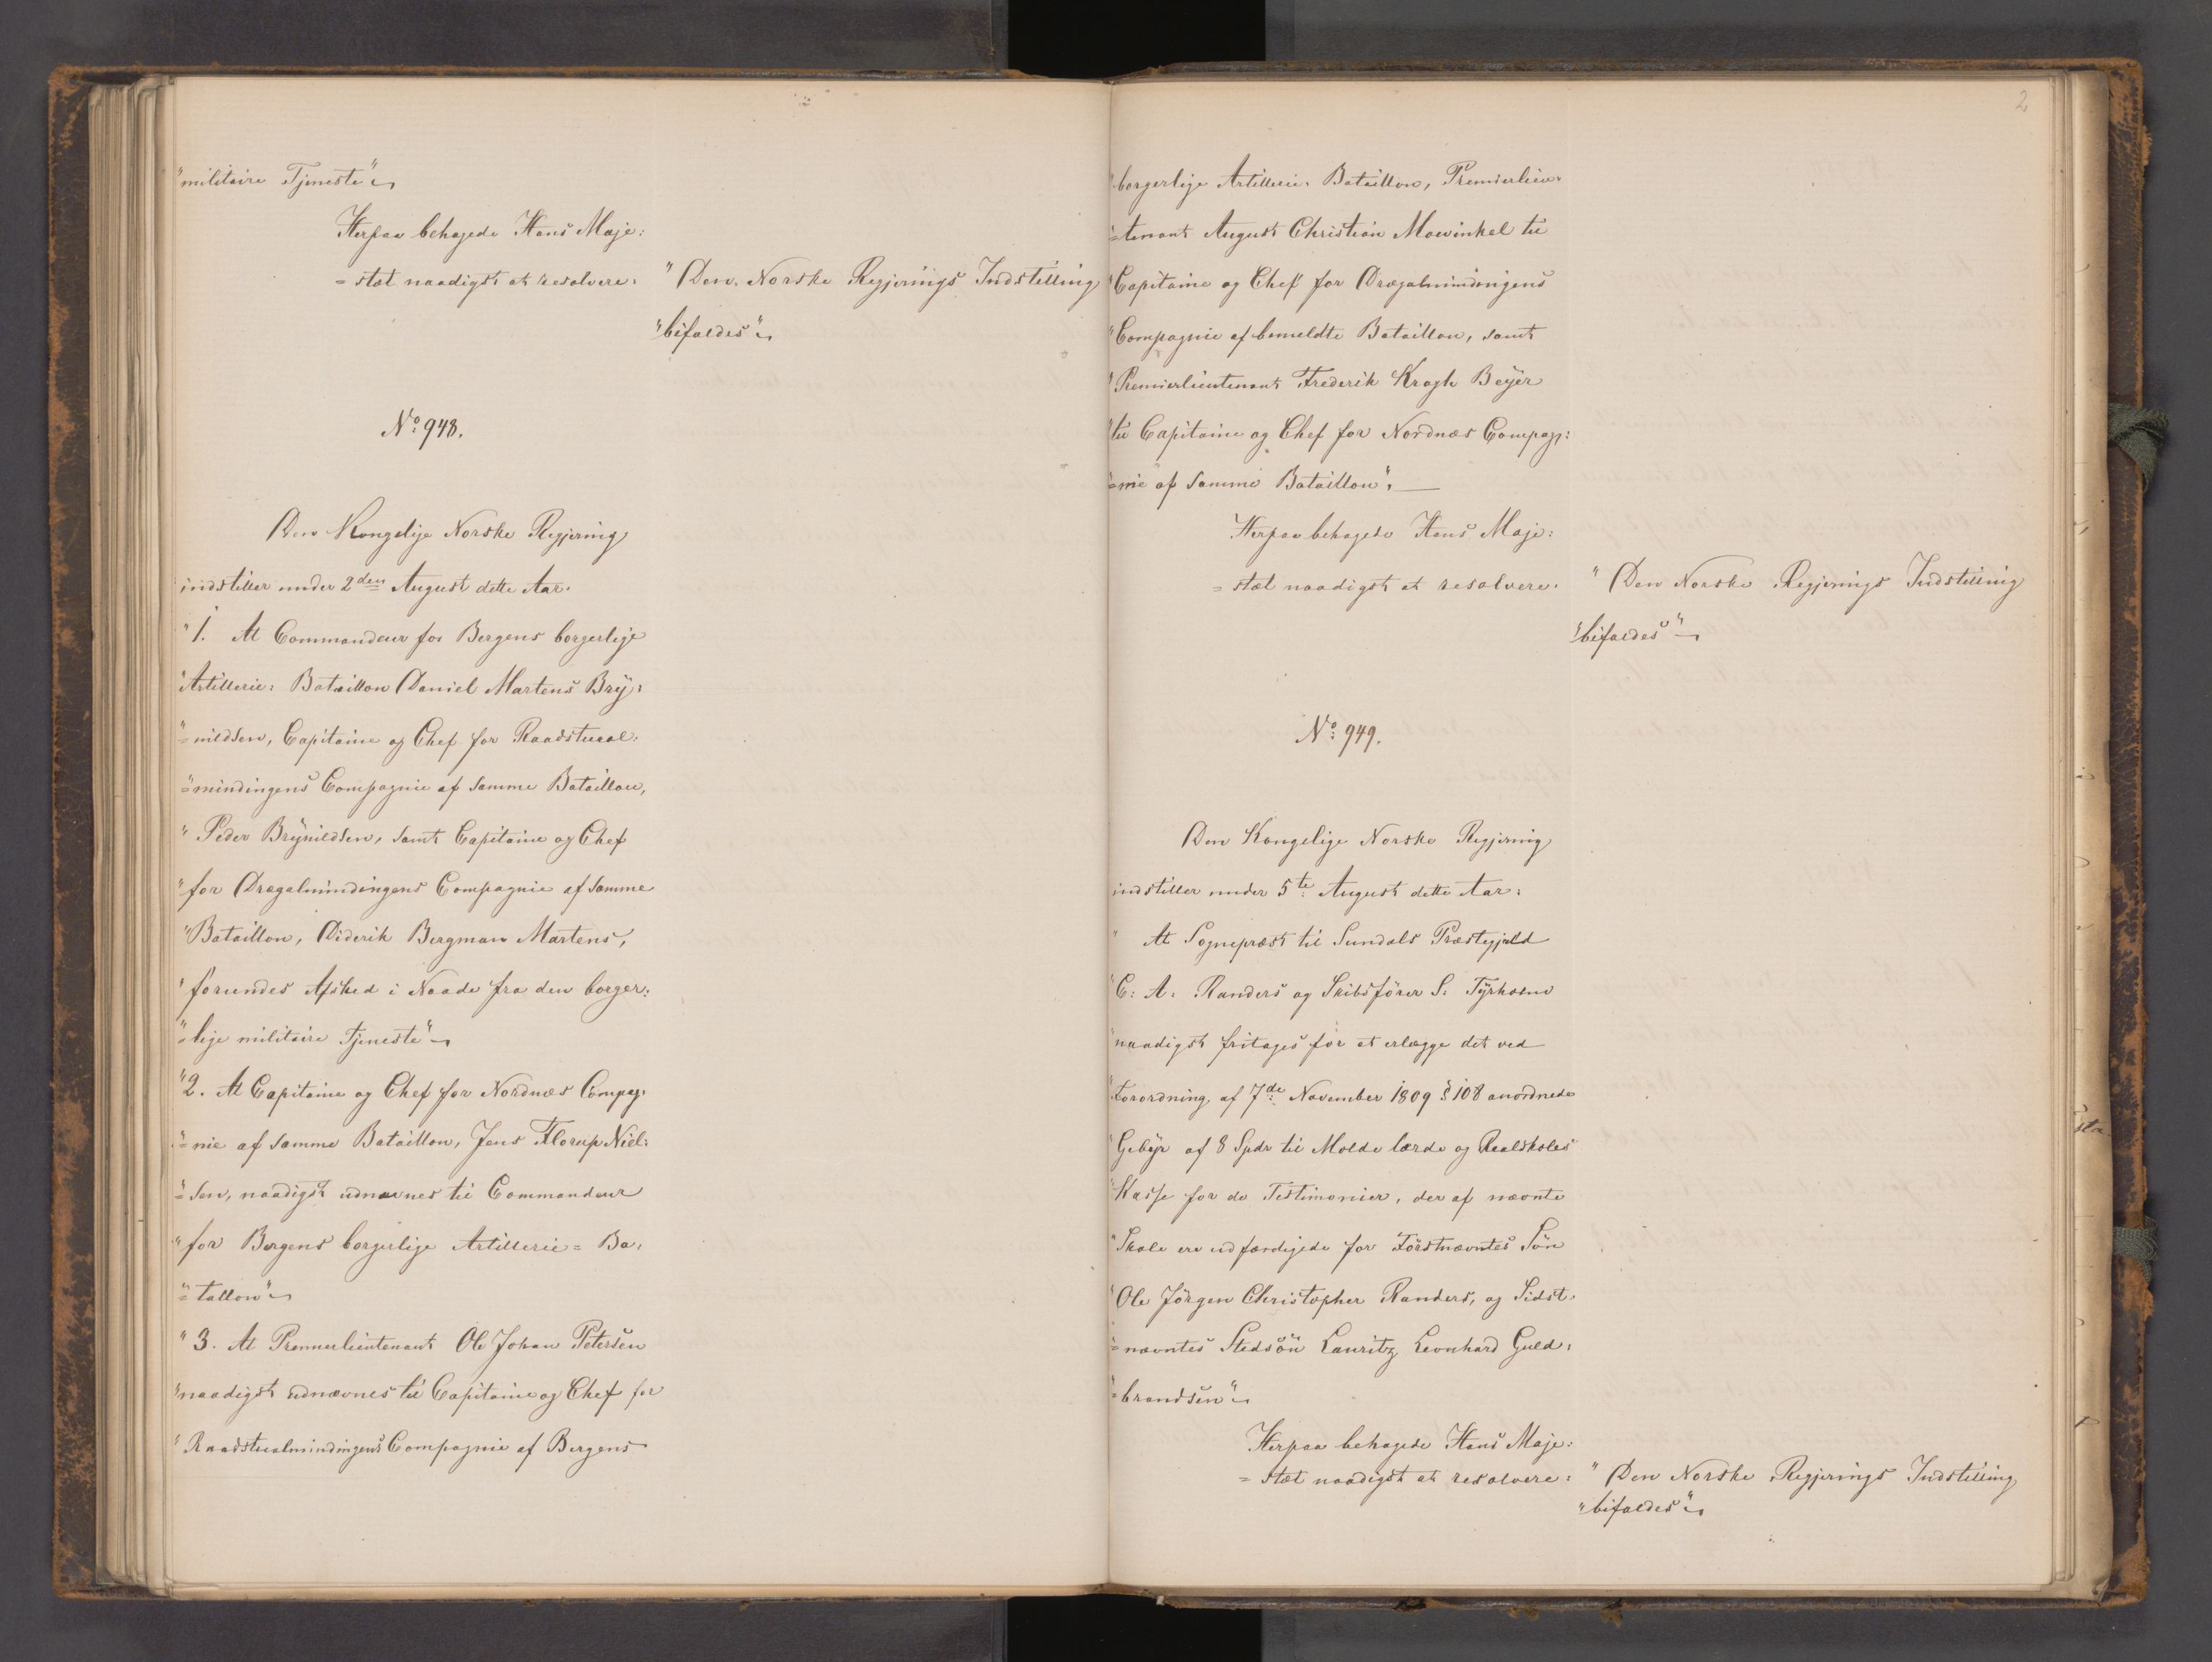 "militaire Tjeneste"
Herpaa behagede Hans Maje:
=stæt naadigst at resolvere:
"Den Norske Regjerings Indstilling
"bifaldes"
No: 948.
Den Kongelige Norske Regjering
indstiller under 2den August dette Aar:
"1. At Commandeur for Bergens borgerlige
"Artillerie: Bataillon Daniel Martens Bry:
"=nildsen, Capitaine og Chef for Raadstueal:
"=mindingens Compagnie af samme Bataillon,
"Peder Brynildsen, samt Capitaine og Chef
"for Drægalmindingens Compagnie af samme
"Bataillon, Diderik Bergman Martens,
"forundes Afsked i Naade fra den borger:
"=lige militaire Tjeneste"
"2. At Capitaine og Chef for Nordnæs Compag:
"=nie af samme Bataillon, Jens Florup Niel:
"=sen, naadigst udnævnes til Commandeur
"for Bergens borgerlige Artillerie= Ba:
"=tallon"
"3. At Premierlieutenant Ole Johan Petersen
"naadigst udnævnes til Capitaine og Chef for
"Raadstualmindingens Compagnie af Bergens
2
"borgerlige Artillerie: Bataillon, Premierlieu:
"=tenant August Christian Mowinkel til
"Capitaine og Chef for Drægalmindingens
"Compagnie af bemeldte Bataillon, samt
"Premierlieutenant Frederik Kragh Beyer
"til Capitaine og Chef for Nordnæs Compag:
"=nie af samme Bataillon".
Herpaa behagede Hans Maje:
=stæt naadigst at resolvere:
"Den Norske Regjerings Indstilling
"bifaldes"
No: 949.
Den Kongelige Norske Regjering
indstiller under 5te August dette Aar:
"At Sognepræst til Sundals Præstegjæld
"C: A: Randers og Skibsförer S: Tyrholm
"naadigst fritages for at erlægge det ved
"Forordning af 7de November 1809 § 108 anordnede
"Gebyr af 8 Spdr til Molde lærde og Realskoles
"Kasse for de Testimonier, der af nævnte
"Skole ere udfærdigede for Förstnævntes Sön
"Ole Jörgen Christopher Randers, og Sidst:
"=nævntes Stedsön Lauritz Leonhard Guld:
"=brandsen"
Herpaa behagede Hans Maje:
=stæt naadigst at resolvere:
"Den Norske Regjerings Indstilling
"bifaldes"